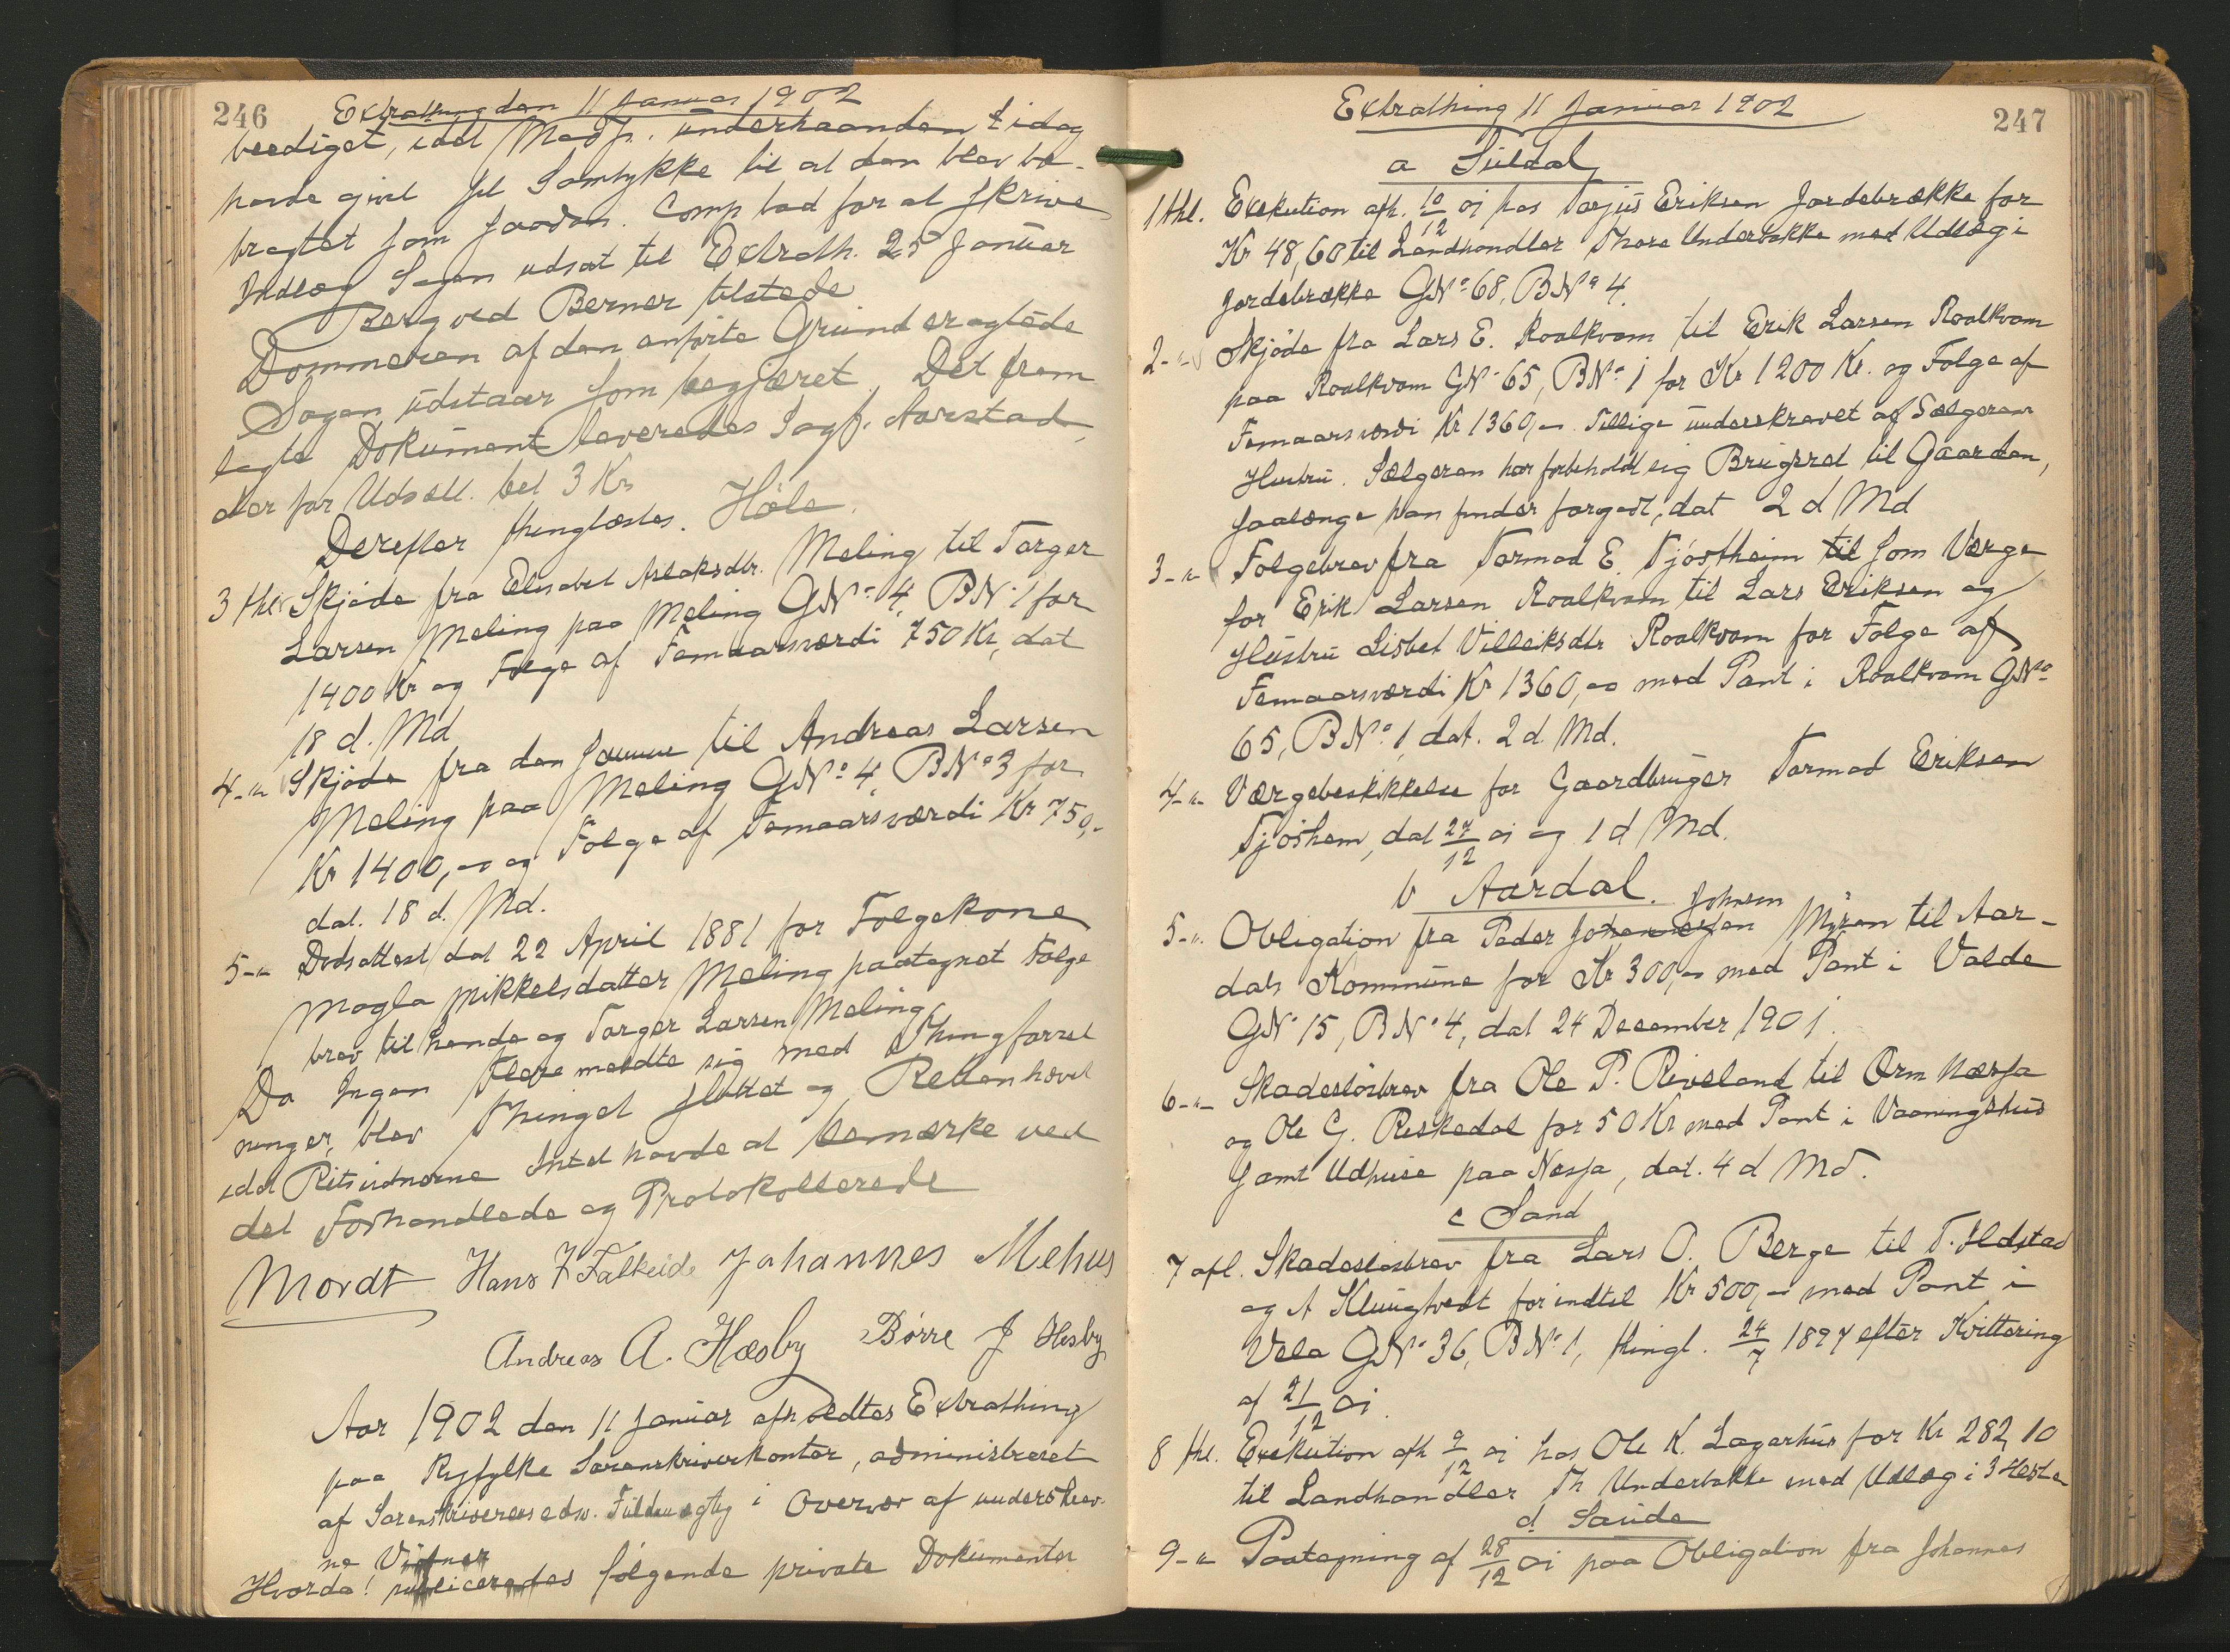 246
Extrathing den 11 Januar 1902
beediget, idet Modp. underhaanden tidag
havde givet sit Samtykke til at den blev be-
tragtet som saadan. Comp bad for at skrive
Indlæg Sagen udsat til Extrath. 25 Januar
Berg ved Berner tilstede
Dommeren af den anførte Grund eragtede
Sagen udstaar som begjæret. Det frem
lagte Dokument leveredes Sagf. Aarstad,
der for Udsætt. bet 3 Kr
Derefter thinglæstes. Høle.
3 thl. Skjøde fra Elisabet Aslaksdtr. Meling til Torger
Larsen Meling paa Meling GNo 4, BNo 1 for
1400 Kr og Følge af Femaarsværdi 750 Kr, dat
18 d. Md
4-"- Skjøde fra den Samme til Andreas Larsen
Meling paa Meling GNo 4, BNo 3 for
Kr 1400,00 og Følge af Femaarsværdi Kr 750,-
dat. 18 d. Md.
5-"- Dødsattest dat 22 April 1881 for Følgekone
Magla Mikkelsdatter Meling paategnet Følge
brev til hende og Torger Larsen Meling
Da Ingen Flere meldte sig med Thingforret
ninger, blev Thinget sluttet og Retten hævet
idet Retsvidnerne Intet havde at bemærke ved
det Forhandlede og Protokollerede
Mordt Hans F Falkeide Johannes Mehus
Andreas A. Hæsby Børre J Hesby
Aar 1902 den 11 Januar afholdtes Extrathing
paa Ryfylke Sorenskriverkontor, administreret
af Sorenskriverens edsv. Fuldmægtig i Overvær af underskrev-
ne Vidner
Hvorda! publiceredes følgende private Dokumenter
247
Extrathing 11 Januar 1902
a Suldal
1 thl. Exekution afh. 10/12 01 hos Tarjus Eriksen Jordebrække for
Kr 48,60 til Landhandler Thore Underbakke med Udlæg i
Jordebrække GNo 68, BNo 4.
2-"- Skjøde fra Lars E. Roalkvam til Erik Larsen Roalkvam
paa Roalkvam GNo 65, BNo 1 for Kr 1200 Kr. og Følge af
Femaarsværdi Kr 1360,00. Tillige underskrevet af Sælgerens
Hustru. Sælgeren har forbeholdt sig Brugsret til Gaarden,
saalænge han finder forgodt, dat 2 d Md
3-"- Følgebrev fra Tormod E. Tjøstheim til som Værge
for Erik Larsen Roalkvam til Lars Eriksen og
Hustru Lisbet Villeiksdtr Roalkvam for Følge af
Femaarsværdi Kr 1360,00 med Pant i Roalkvam GNo
65, BNo 1, dat. 2 d. Md.
4-"- Værgebeskikkelse for Gaardbruger Tormod Eriksen
Tjøshem, dat 27/12 01 og 1 d Md.
b Aardal.
Johnsen
5-"- Obligation fra Peder Johannesen Myren til Aar-
dals Kommune for Kr 300,00 med Pant i Valde
GNo 15, BNo 4, dat 24 December 1901.
6-"- Skadesløsbrev fra Ole P. Riveland til Orm Næssa
og Ole G. Riskedal for 50 Kr med Pant i Vaaningshus
samt Udhuse paa Næssa, dat. 4 d Md.
c Sand
7 afl. Skadesløsbrev fra Lars O. Berge til T. Ildstad
og A Klungtvedt for indtil Kr 500,00 med Pant i
Vela GNo 36, BNo 1, thingl. 24/7 1897 efter Kvittering
af 21/12 01.
8 thl. Exekution afh 9/12 01 hos Ole K. Lagerhus for Kr 282,10
til Landhandler Th Underbakke med Udlæg i 3 Heste
d. Saude
9-"- Paategning af 28/12 01 paa Obligation fra Johannes